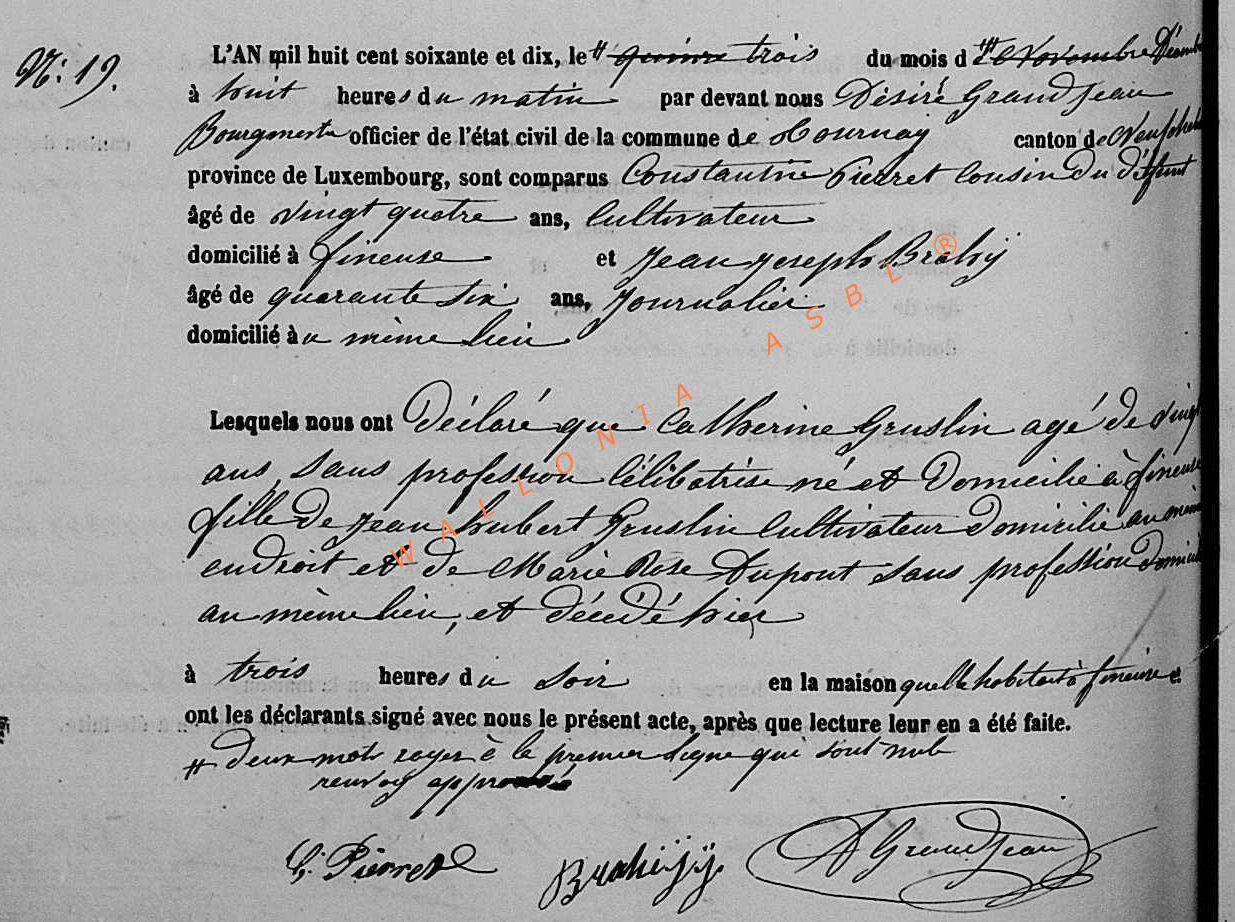 N: 19.
L'AN mil huit cent soixante et dix, le # quinze trois du mois d # e Novembre Décembre
à huit heures du matin par devant nous Désiré Grandjean
Bourgmestre officier de l'état civil de la commune de Tournay canton de Neufchat
province de Luxembourg, sont comparus Constantin Pierret Cousin du défunt
âgé de vingt quatre ans, Cultivateur
domicilié à fineuse et Jean Joseph Brahy
âgé de quarante six ans, Journalier
domicilié à u même lieu
Lesquels nous ont Déclaré que Catherine Gruslin agé de vingt
ans, Sans profession Célibatrise né et Domicilié à fineuse
fille de Jean hubert Gruslin Cultivateur domicilié au même
endroit et de Marie Rose Dupont sans profession domicil
au même lieu, et décédé hier
à trois heures du soir en la maison quelle habitait à fineuse et
ont les déclarants signé avec nous le présent acte, après que lecture leur en a été faite.
# deux mots rayer à la premier ligne qui sont nuls
renvoy approuvé
C. Pierret
Brahy
D Grandjean
WALLONIA ASBL ®